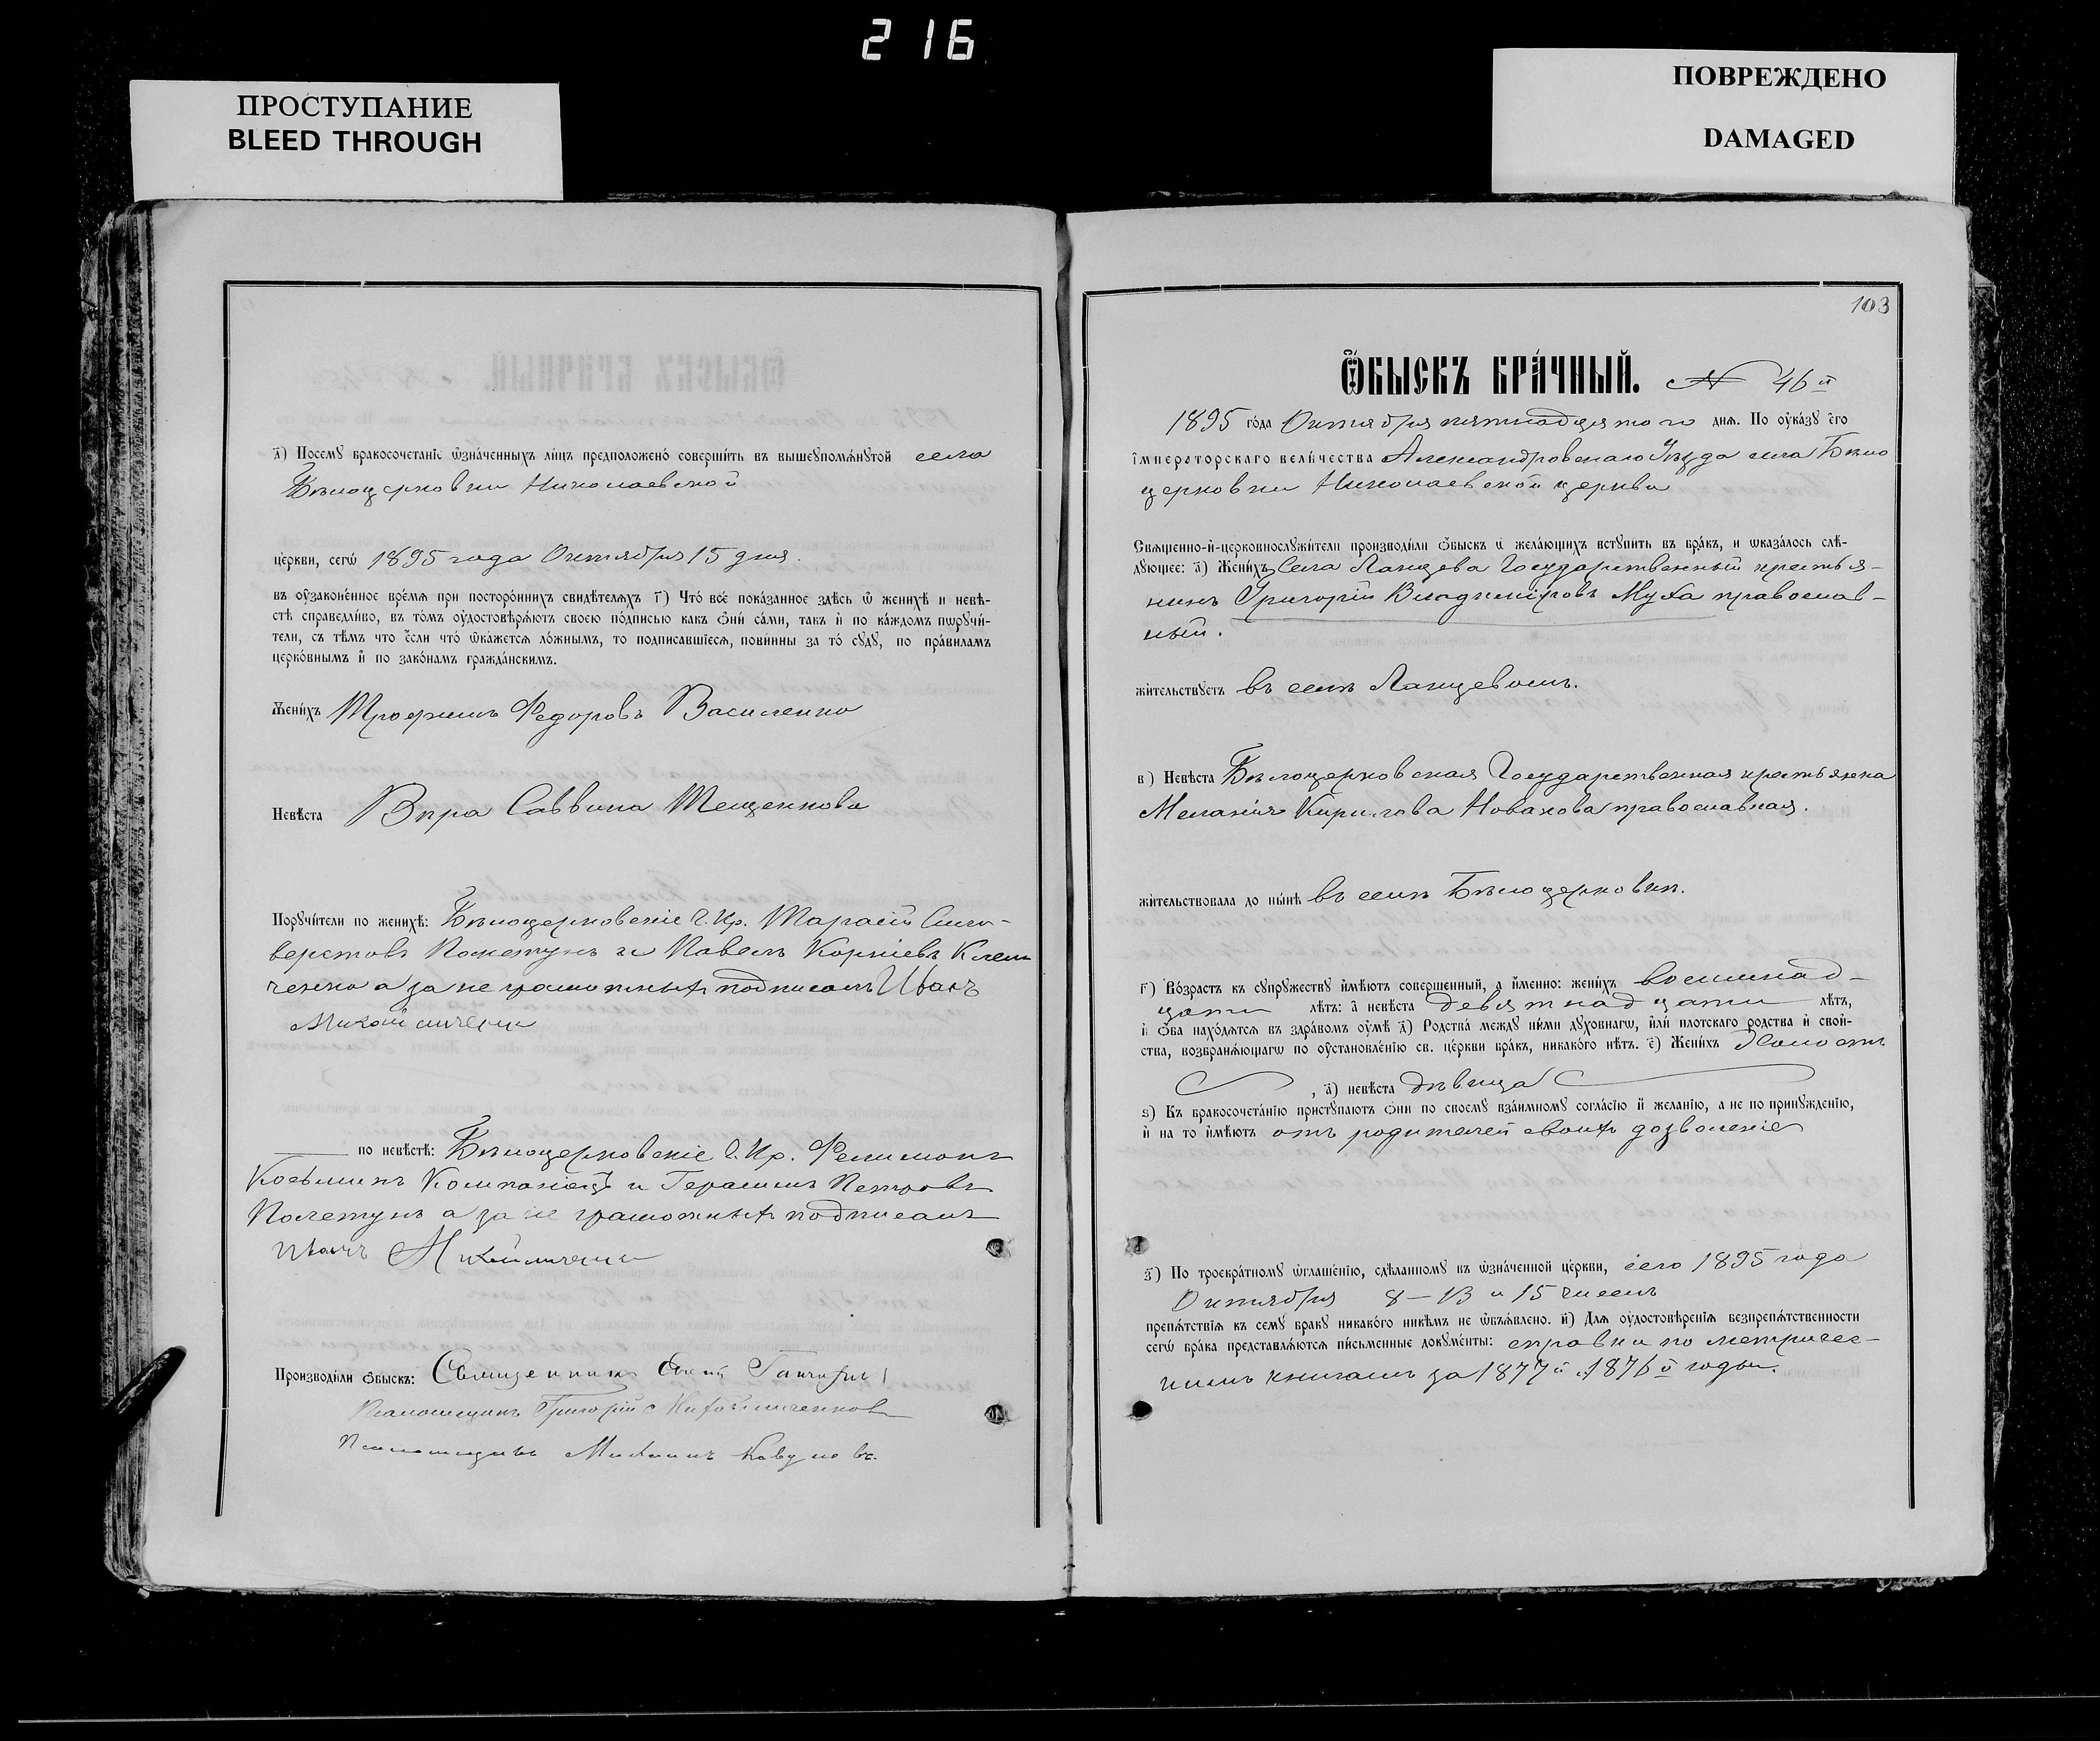 216
ПРОСТУПАНИЕ
BLEED THROUGH
ПОВРЕЖДЕНО
DAMAGED
д҃) Посемꙋ бракосочетанїе ѡзна́ченныхъ ли́цъ предположено́ соверши́ть въ вышеꙋпомѧ́нꙋтой села
Бѣлоцерковки Николаевской
це́ркви, сегѡ̀ 1895 года Октября 15 дня.
въ оу҆законе́нное вре́мѧ при посторо́ннихъ свидѣ́телѧхъ г҃) Что̀ всѐ пока́занное здѣ́сь ѡ҆ женихѣ̀ и невѣ́-
стѣ справедли́во, въ то́мъ оу҆достовѣрѧ́ютъ своею по́дписью какъ ѻ҆нѝ са́ми, такъ и҆ по ка́ждомъ порꙋчи́-
тели, съ тѣ́мъ что є҆́сли что̀ ѡ҆ка́жетсѧ ло́жнымъ, то подписавшїесѧ, пови́нны за то̀ сꙋдꙋ̀, по пра́виламъ
церко́внымъ и҆ по зако́намъ гражда́нскимъ.
Жени́хъ Трофимъ Федоровъ Василенко
Невѣ́ста Вѣра Саввина Тещенкова
Порꙋчи́тели по женихѣ̀: Бѣлоцерковскіе Г. Кр. Тарасій Сило-
верстовъ Полетунъ и Павелъ Корніевъ Клеи
ченко а за не грамотныхъ подписалъ Иванъ
по невѣ́стѣ: Бѣлоцерковскіе Г. Кр. Филимонъ
Косьминъ Компаніецъ и Герасимъ Петровъ
Полетунъ а за не грамотныхъ подписалъ
Иванъ
Производи́ли ѻ҆́быскъ: Священникъ
Псаломщикъ Григорій
Псаломщикъ Михаилъ Кавуновъ.
103
Ѻ҆́БЫСКЪ БРА́ЧНЫЙ. № 46й
1895 го́да Октября пятнадцятого днѧ. По оу҆ка́зꙋ є҆гѡ̀
и҆мпера́торскагѡ вели́чества Александровскаго Уѣзда села Бѣло
церковки Николаевской церкви
Свѧще́нно-и҆-церковнослꙋжи́тели производи́ли ѻ҆́быскъ ѡ҆ жела́ющихъ встꙋпи́ть въ бра́къ, и ѡ҆каза́лось слѣ́-
дꙋющее: а҃) Жени́хъ Села Ланцева Государственный крестья-
нинъ Григорій Владиміровъ Муха православ-
ный.
жи́тельствꙋетъ въ селѣ Ланцевомъ.
в҃) Невѣ́ста Бѣлоцерковская Государственная крестьянка
Меланія Кирилова Новакова православная.
жи́тельствовала до ны́нѣ въ селѣ Бѣлоцерковкѣ.
г҃) Во́зрастъ къ сꙋпрꙋ́жествꙋ и҆мѣ́ютъ соверше́нный, а и҆́менно: жени́хъ восимнад-
цати лѣ́тъ: а невѣ́ста девятнадцати лѣ́тъ,
и҆ ѻ҆́ба нахо́дѧтсѧ въ здра́вомъ оу҆мѣ̀ д҃) Родства̀ междꙋ ни́ми дꙋхо́внагѡ, и҆́ли пло́тскаго родства̀ и҆ свой-
ства̀, возбранѧ́ющагѡ по оу҆становле́нїю св. це́ркви бра́къ, никако́го нѣ́тъ. е҃) Жени́хъ холостъ
, а҃) невѣ́ста дѣвица
ѕ҃) Къ бракосочета́нїю пристꙋпа́ютъ ѻ҆нѝ по своемꙋ̀ взаи́мномꙋ согла́сїю и҆ жела́нїю, а не по принꙋжде́нїю,
и҆ на то и҆мѣ́ютъ отъ родителей своихъ дозволеніе
з҃) По троекра́тномꙋ ѡ҆глаше́нїю, сдѣ́ланномꙋ въ ѡ҆зна́ченной це́ркви, сего 1895 года
Октября 8 – 13 и 15 чиселъ
препѧ́тствїѧ къ семꙋ̀ бра́кꙋ никако́го никѣ́мъ не ѡ҆б̾ѧ́влено. и҃) Длѧ оу҆достовѣре́нїѧ безпрепѧ́тственности
сегѡ̀ бра́ка представлѧ́ютсѧ пи́сьменные докꙋме́нты: справки по метричес-
кимъ книгамъ за 1877й и 1876й годы.